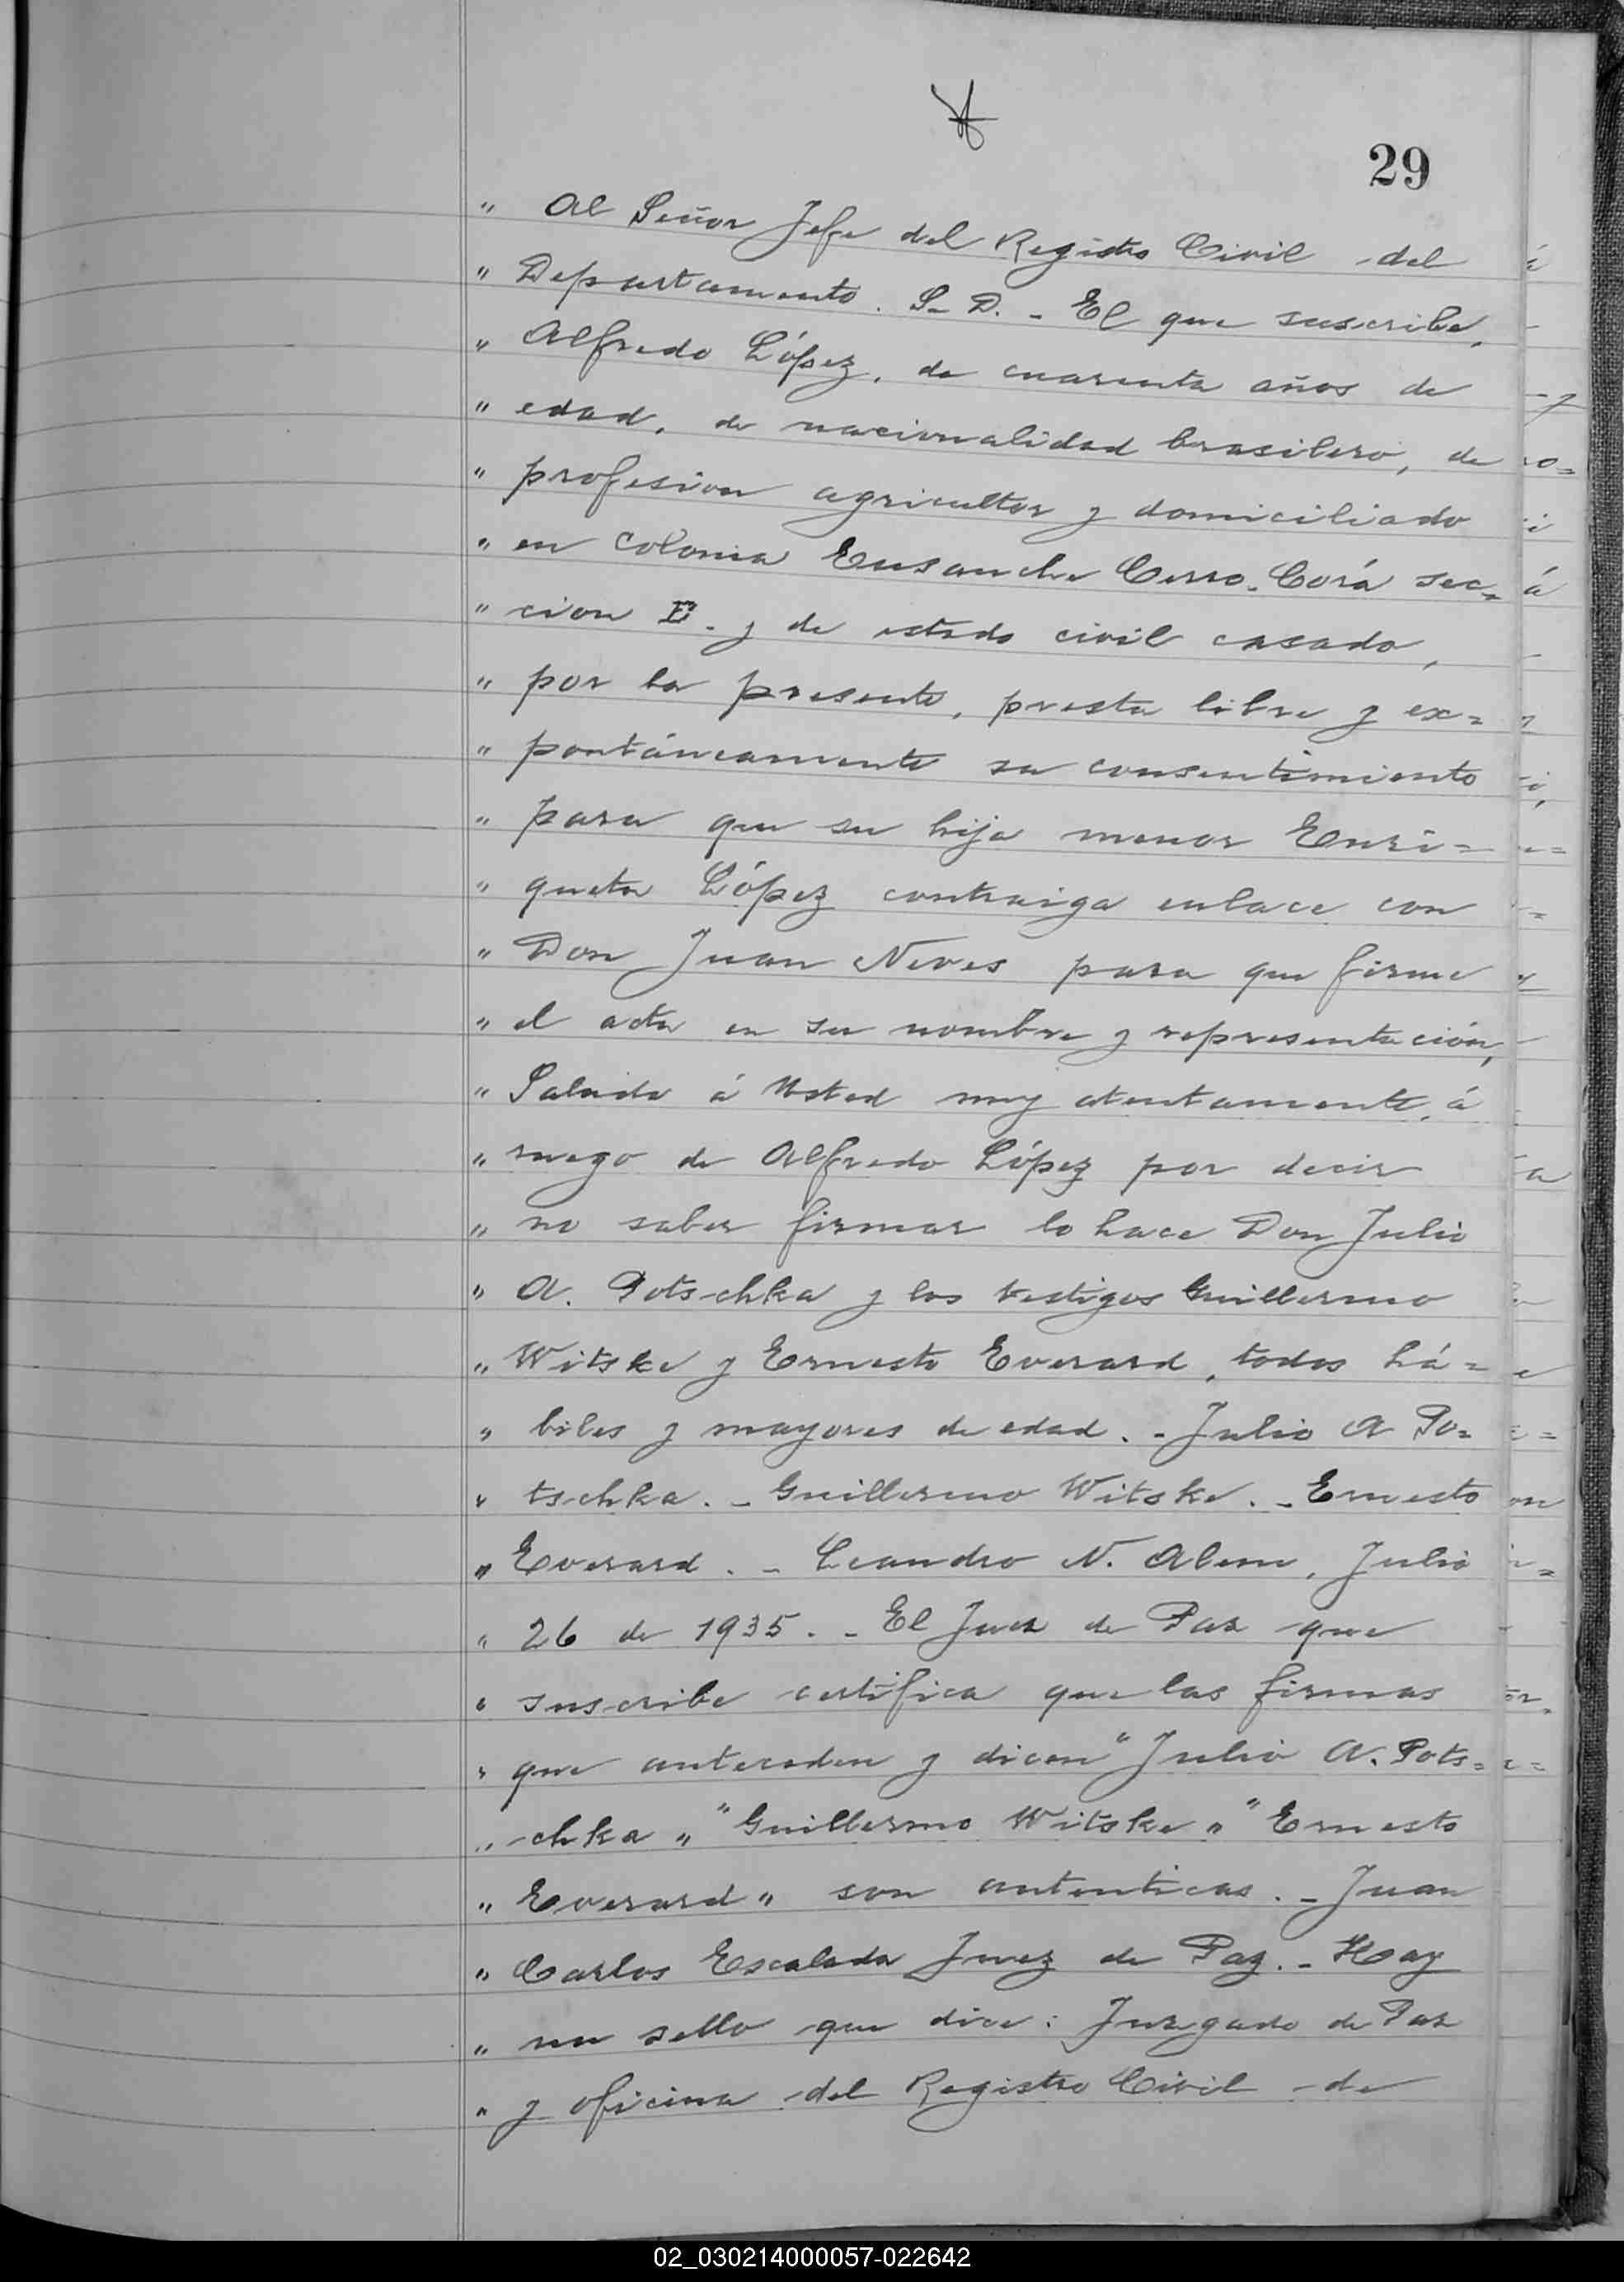 29
" Al Señor Jefe del Registro Civil del
" Departamento. S_ D. _ El que suscribe,
" Alfredo López, de cuarenta años de
" edad, de nacionalidad brasilero, de
" profesion agricultor y domiciliado
" en Colonia Ensanche Cerro-Corá sec=
" cion E. y de estado civil casado,
" por la presente, presta libre y ex=
" pontáneamente su consentimiento
" para que su hija menor Enri=
" queta López contraiga enlace con
" Don Juan Neves para que firme
" el acta en su nombre y representación,
" Saludo á Usted muy atentamente, á
" ruego de Alfredo López por decir
" no saber firmar lo hace Don Julio
" A. Potschka y los testigos Guillermo
" Witske y Ernesto Everard, todos há=
" biles y mayores de edad. _ Julio A Po=
" tschka. _ Guillermo Witske. _ Ernesto
" Everard. _ Leandro N. Alem, Julio
" 26 de 1935. _ El Juez de Paz que
" suscribe certifica que las firmas
" que anteceden y dicen "Julio A. Pots=
" chka" "Guillermo Witske" "Ernesto
" Everard" son autenticas. _ Juan
" Carlos Escalada Juez de Paz. _ Hay
" un sello que dice: Juzgado de Paz
" y oficina del Registro Civil de
02_030214000057-022642